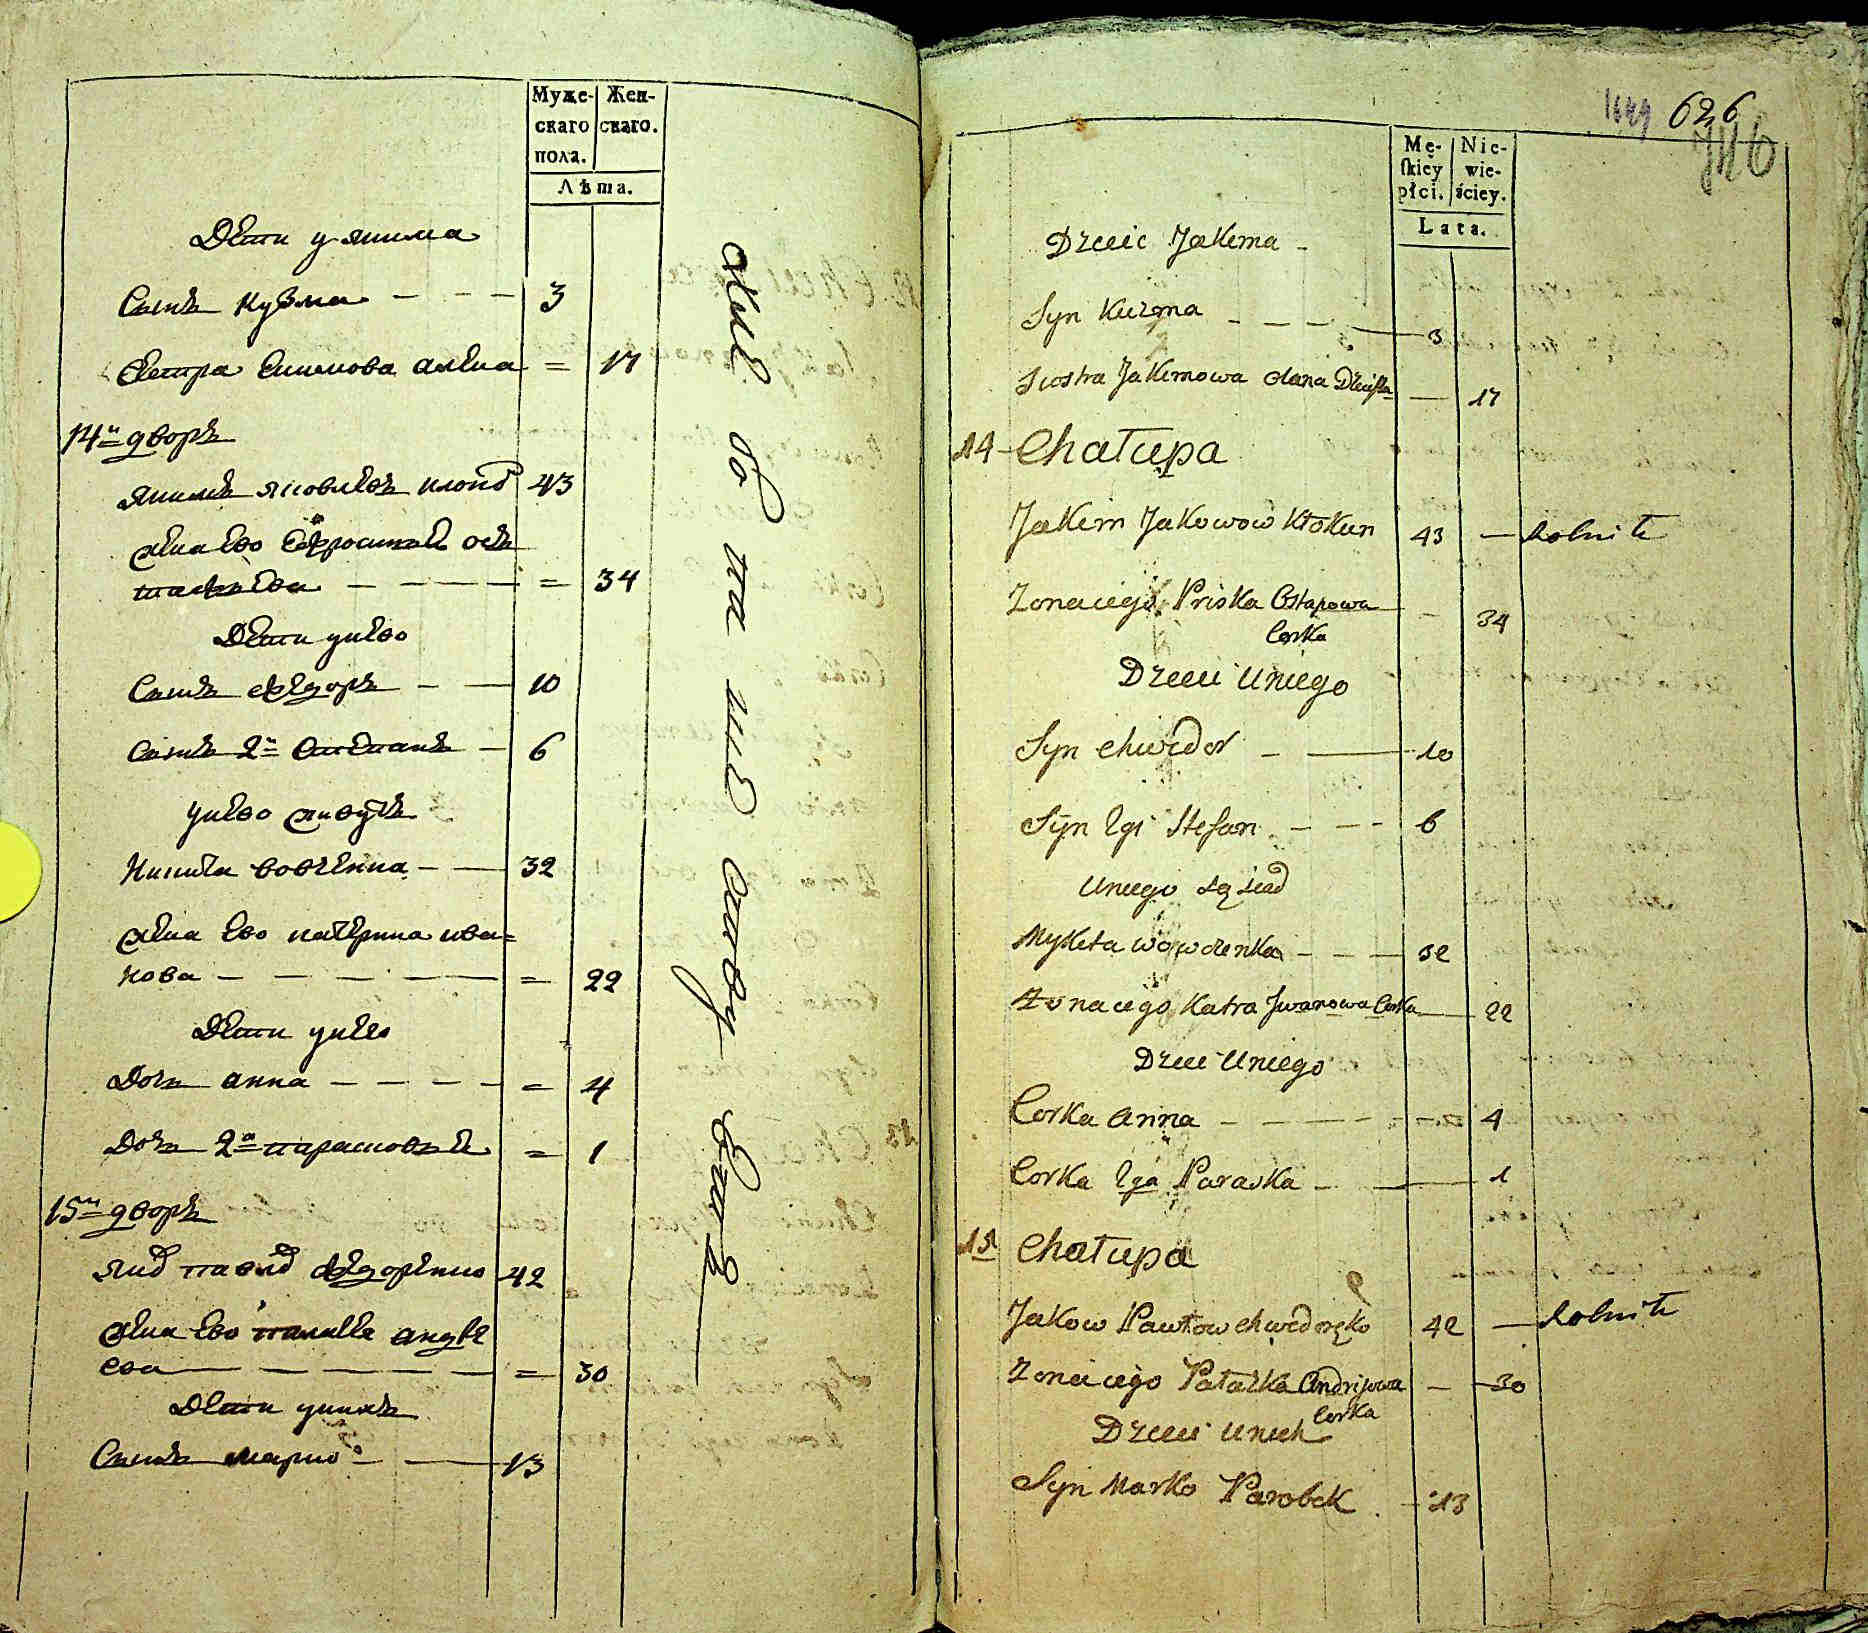 Муже-
скаго
пола.
Жен-
скаго.
Лѣта.
Дети у якима
Сынъ кузма - - - 3
сестра якимова алена = 17
14й дворъ
якимъ яковлевъ клокѹ 43
жена ево ефросиния оста
= 34
Дети у нево
Сынъ федоръ - - 10
Сынъ 2й степанъ - 6
у нево живутъ
Никита вовченка - - 32
жена ево катерина ива=
нова - - - - = 22
Дети у нево
Дочь анна - - - - = 4
Дочь 2я парасковья = 1
15й дворъ
федоренко 42
жена ево андре
ева = 30
Дети у нихъ
Сынъ марко - - 13
626
Mę-
skiey
płci.
Nie-
wie-
ściey.
Lata.
Dzieci Jakima -
Syn Kuzma - - - 3
Siostra Jakimowa Olena Dziewka - 17
14 Chałupa
Jakim Jakowow Kłokun 43 - Rolnik
Zona iego Priska Ostapowa - 34
Corka
Dzieci u niego
Syn Chwedor - - 10
Syn 2gi Stefan - - - 6
U niego sąsiad
Mykita Wowczenka - - - 32
Zona iego Katra Jwanowa Corka - 22
Dzieci u niego
Corka Anna - - - - - 4
Corka 2ga Paraska - - 1
15 Chałupa
Jakow Pawłow Chwedoręko 42 - Rolnik
Zona iego Pałażka Andrijowa - 30
Corka
Dzieci u nich
Syn Marko Parobek - 13